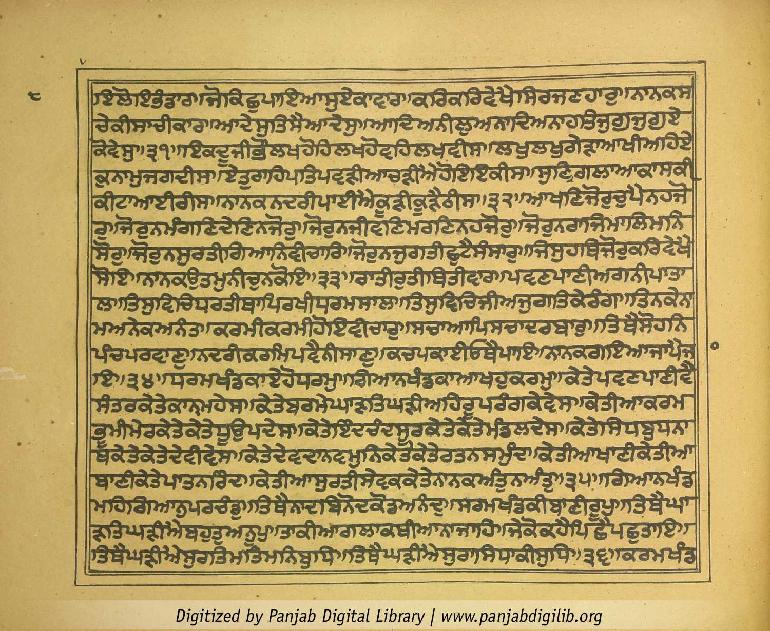 ੮
ਇਲੋਇਭੰਡਾਰ॥ਜੋਕਿਛੁਪਾਇਆਸੁਏਕਾਵਾਰ॥ਕਰਿਕਰਿਵੇਖੈਸਿਰਜਣਹਾਰੁ॥ਨਾਨਕਸ
ਚੇਕੀਸਾਚੀਕਾਰ॥ਆਦੇਸੁਤਿਸੈਆਦੇਸੁ॥ਆਦਿਅਨੀਲੁਅਨਾਦਿਅਨਾਹਤਿਜੁਗੁਜੁਗੁਏ
ਕੋਵੇਸੁ॥੩੧॥ਇਕਦੂਜੀਭੌਲਖਹੋਹਿਲਖਹੋਵਹਿਲਖਵੀਸ॥ਲਖੁਲਖੁਗੇੜਾਆਖੀਅਹਿਏ
ਕੁਨਾਮੁਜਗਦੀਸ॥ਏਤੁਰਾਹਿਪਤਿਪਵੜੀਆਚੜੀਐਹੋਇਇਕੀਸ॥ਸੁਣਿਗਲਾਆਕਾਸਕੀ
ਕੀਟਾਆਈਰੀਸ॥ਨਾਨਕਨਦਰੀਪਾਈਐਕੂੜੀਕੂੜੈਠੀਸ॥੩੨॥ਆਖਣਿਜੋਰੁਚੁਪੈਨਹਜੋ
ਰੁ॥ਜੋਰੁਨਮੰਗਣਿਦੇਣਿਨਜੋਰੁ॥ਜੋਰੁਨਜੀਵਣਿਮਰਣਿਨਹਜੋਰੁ॥ਜੋਰੁਨਰਾਜਿਮਾਲਿਮਨਿ
ਸੋਰੁ॥ਜੋਰੁਨਸੁਰਤੀਗਿਆਨਿਵੀਚਾਰਿ॥ਜੋਰੁਨਜੁਗਤੀਛੁਟੈਸੰਸਾਰੁ॥ਜਿਸੁਹਥਿਜੋਰੁਕਰਿਵੇਖੈ
ਸੋਇ॥ਨਾਨਕਉਤਮੁਨੀਚੁਨਕੋਇ॥੩੩॥ਰਾਤੀਰੁਤੀਥਿਤੀਵਾਰ॥ਪਵਣਪਾਣੀਅਗਨੀਪਾਤਾ
ਲ॥ਤਿਸੁਵਿਚਿਧਰਤੀਥਾਪਿਰਖੀਧਰਮਸਾਲ॥ਤਿਸੁਵਿਚਿਜੀਅਜੁਗਤਿਕੇਰੰਗ॥ਤਿਨਕੇਨਾ
ਮਅਨੇਕਅਨੰਤ॥ਕਰਮੀਕਰਮੀਹੋਇਵੀਚਾਰੁ॥ਸਚਾਆਪਿਸਚਾਦਰਬਾਰੁ॥ਤਿਥੈਸੋਹਨਿ
ਪੰਚਪਰਵਾਣੁ॥ਨਦਰੀਕਰਮਿਪਵੈਨੀਸਾਣੁ॥ਕਚਪਕਾਈਓਥੈਪਾਇ॥ਨਾਨਕਗਇਆਜਾਪੈਜਾ
ਇ॥੩੪॥ਧਰਮਖੰਡਕਾਏਹੋਧਰਮੁ॥ਗਿਆਨਖੰਡੁਕਾਆਖਹੁਕਰਮੁ॥ਕੇਤੇਪਵਣਪਾਣੀਵੈ
ਸੰਤਰਕੇਤੇਕਾਨਮਹੇਸ॥ਕੇਤੇਬਰਮੇਘਾੜਤਿਘੜੀਅਹਿਰੂਪਰੰਗਕੇਵੇਸ॥ਕੇਤੀਆਕਰਮ
ਭੂਮੀਮੇਰਕੇਤੇਕੇਤੇਧੂਉਪਦੇਸ॥ਕੇਤੇਇੰਦਚੰਦਸੂਰਕੇਤੇਕੇਤੇਮੰਡਲਦੇਸ॥ਕੇਤੇਸਿਧਬੁਧਨਾ
ਥਕੇਤੇਕੇਤੇਦੇਵੀਵੇਸ॥ਕੇਤੇਦੇਵਦਾਨਵਮੁਨਿਕੇਤੇਕੇਤੇਰਤਨਸਮੁੰਦ॥ਕੇਤੀਆਖਾਣੀਕੇਤੀਆ
ਬਾਣੀਕੇਤੇਪਾਤਨਰਿੰਦ॥ਕੇਤੀਆਸੁਰਤੀਸੇਵਕਕੇਤੇਨਾਨਕਅੰਤੁਨਅੰਤੁ॥੩੫॥ਗਿਆਨਖੰਡ
ਮਹਿਗਿਆਨੁਪਰਚੰਡੁ॥ਤਿਥੈਨਾਦਬਿਨੋਦਕੋਡਅਨੰਦੁ॥ਸਰਮਖੰਡਕੀਬਾਣੀਰੂਪੁ॥ਤਿਥੈਘਾ
ੜਤਿਘੜੀਐਬਹੁਤੁਅਨੂਪੁ॥ਤਾਕੀਆਗਲਾਕਥੀਆਨਾਜਾਹਿ॥ਜੇਕੋਕਹੈਪਿਛੈਪਛੁਤਾਇ॥
ਤਿਥੈਘੜੀਐਸੁਰਤਿਮਤਿਮਨਿਬੁਧਿ॥ਤਿਥੈਘੜੀਐਸੁਰਾਸਿਧਾਕੀਸੁਧਿ॥੩੬॥ਕਰਮਖੰਡ
Digitized by Panjab Digital Library | www.panjabdigilib.org